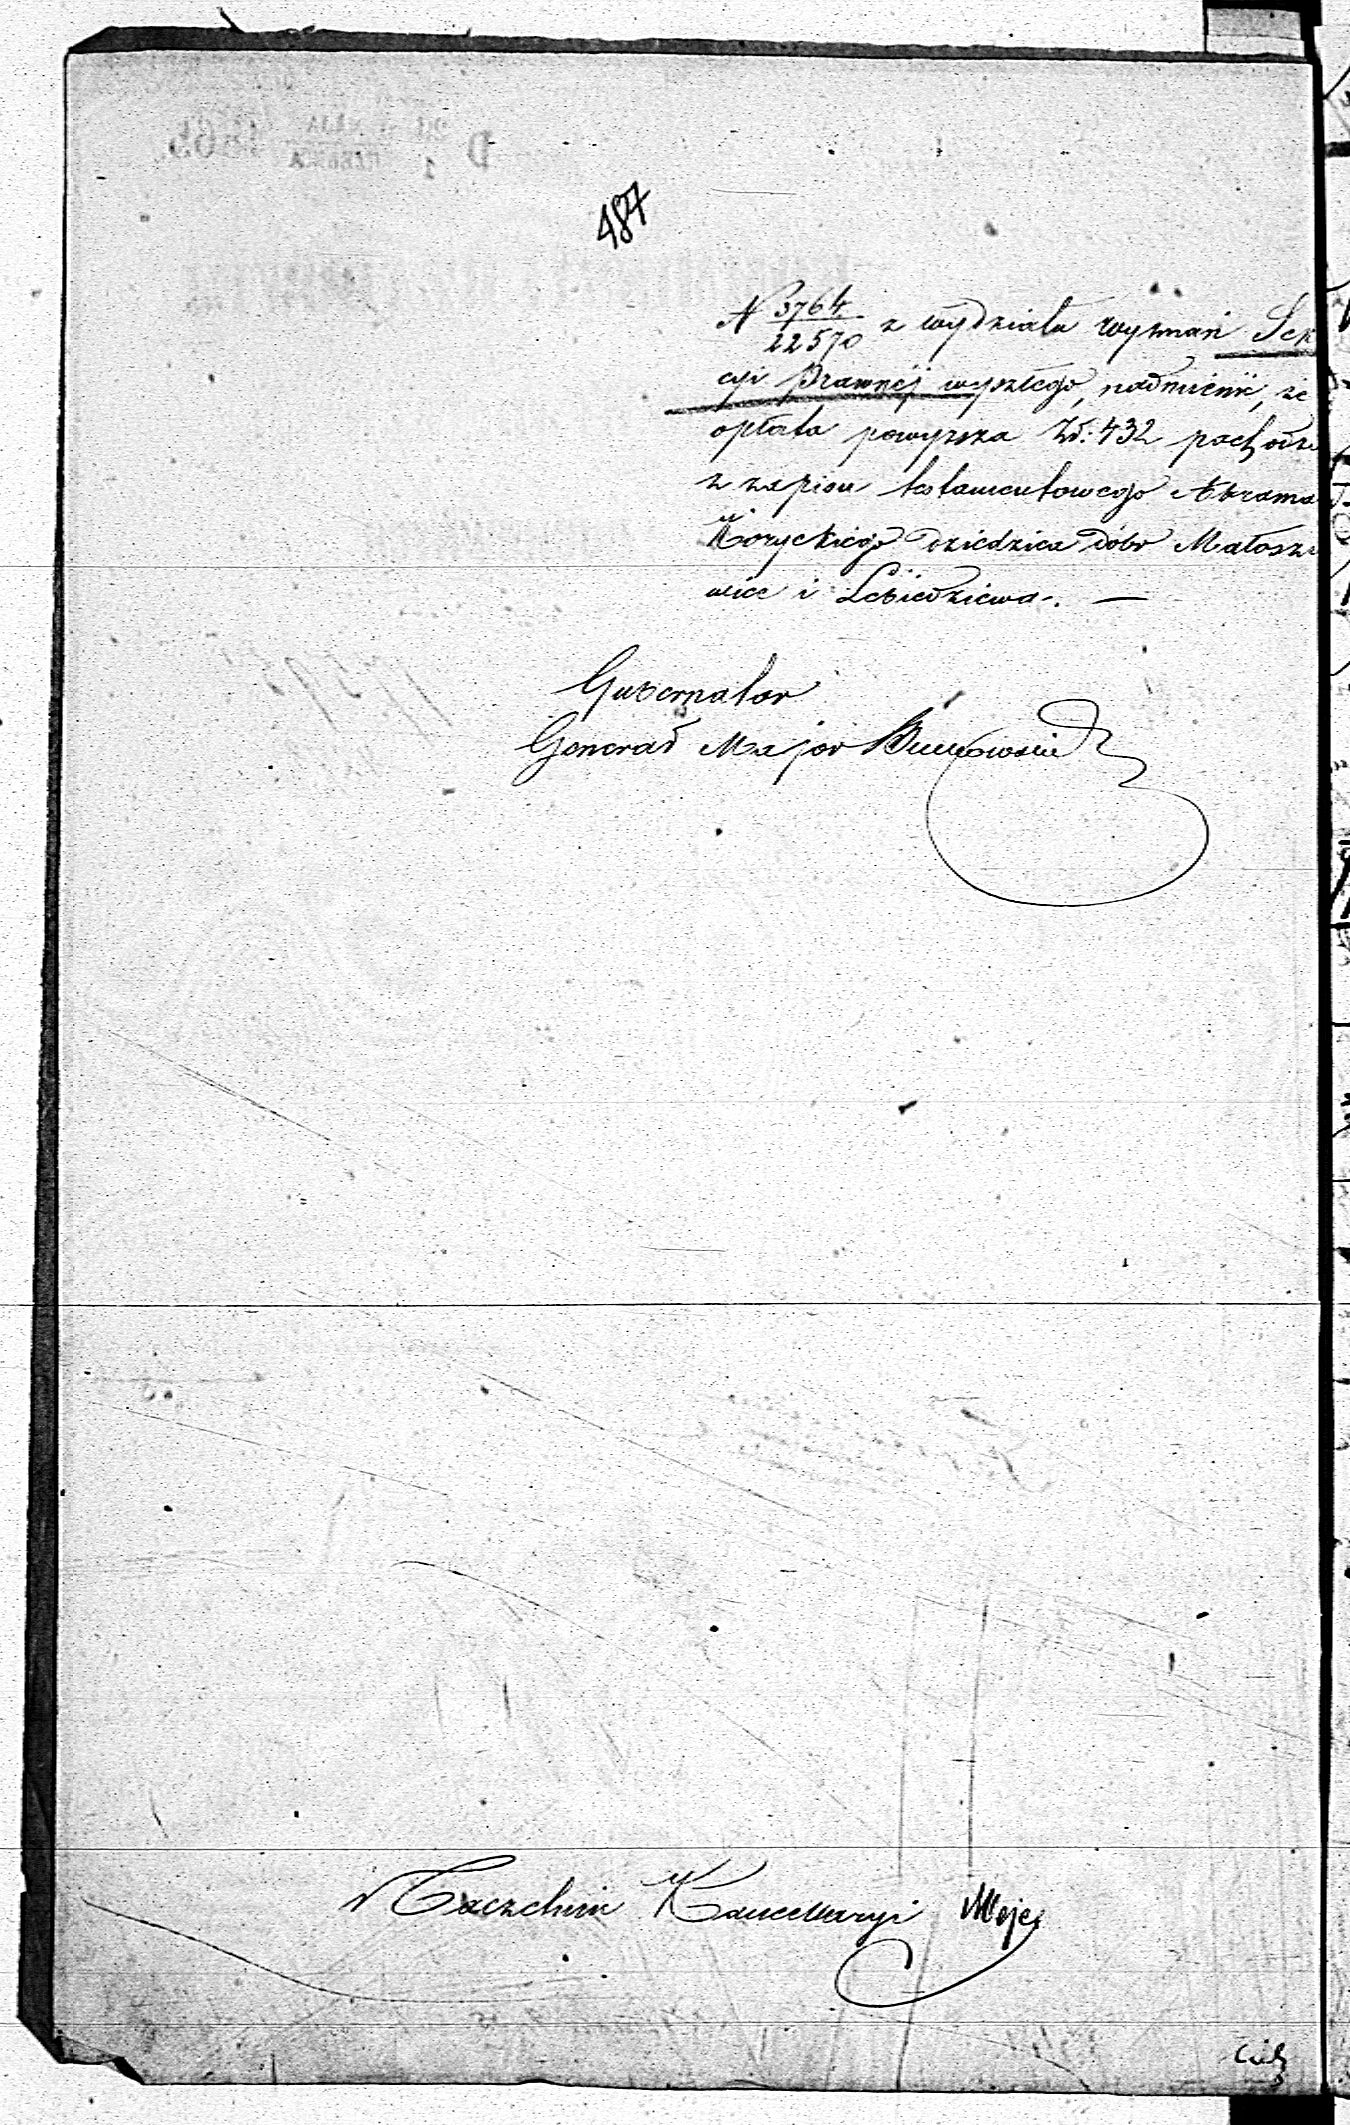 487
N 3764/22570 z wydziału wyznań Sek
cyi Prawnéj wyszłego, nadmienia, że
opłata powyższa Zł: 432 pochodzi
z zapisu testamentowego Abrama
Koryckiego dziedzica dóbr Małosze
wice i Lebiedziewa. —
Gubernator
Generał Major
Naczelnik Kancellaryi